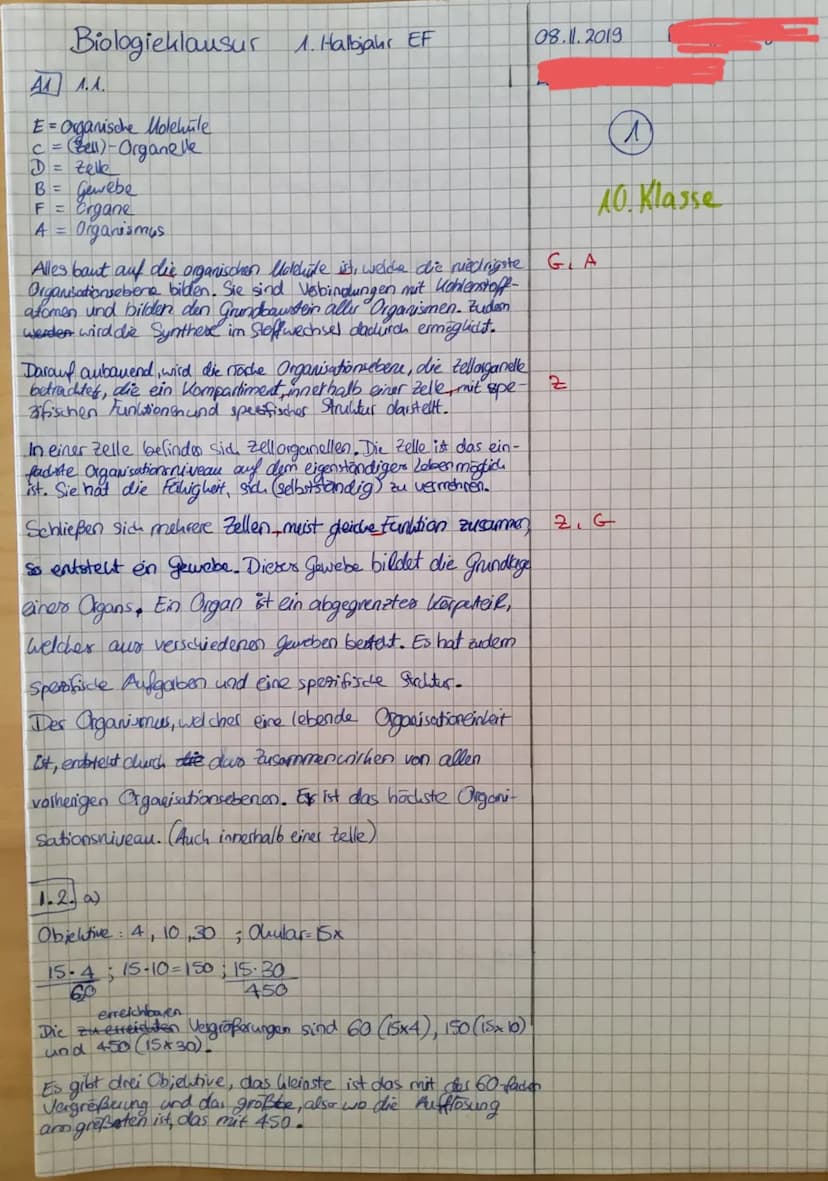 Biologieklausur 1. Halbjahr EF 08.11.2019
A1 1.1.
E = Organische Moleküle
C = (Zell)-Organelle
D = Zelle
B = Gewebe
F = Organe
A = Organismus
1
10. Klasse
Alles baut auf die organischen Moleküle ist, welche die niedrigste G, A
Organisationsebene bilden. Sie sind Verbindungen mit Kohlenstoff-
atomen und bilden den Grundbaustein aller Organismen. Zudem
werden wird die Synthese im Stoffwechsel dadurch ermöglicht.
Darauf aubauend, wird die Organisationsebene, die Zellorganelle
betrachtet, die ein Kompartiment, innerhalb einer Zelle, mit spe- Z
zifischen Funktionen und spezifischer Struktur darstellt.
In einer Zelle befinden sich Zellorganellen. Die Zelle ist das ein-
fachste Organisationsniveau auf dem eigenständiges Leben möglich
ist. Sie hat die Fähigkeit, sich (selbstständig) zu vermehren.
Schließen sich mehrere Zellen, meist gleiche Funktion zusammen, Z, G
so entsteht ein Gewebe. Dieses Gewebe bildet die Grundlage
eines Organs. Ein Organ ist ein abgegrenztes Körperteil,
welches aus verschiedenen Geweben besteht. Es hat zudem
spezifische Aufgaben und eine spezifische Struktur.
Der Organismus, welcher eine lebende Organisationeinheit
ist, entsteht durch die das Zusammenwirken von allen
vorherigen Organisationsebenen. Es ist das höchste Organi-
sationsniveau. (Auch innerhalb einer Zelle)
1.2. a)
Objektive: 4, 10, 30 ; Okular=15x
15·4 ; 15·10=150 ; 15·30
60 450
erreichbaren
Die zu erreichten Vergrößerungen sind 60 (15x4), 150 (15x10)
und 450 (15x30).
Es gibt drei Objektive, das kleinste ist das mit der 60-fachen
Vergrößerung und das größte, also wo die Auflösung
am größten ist, das mit 450.